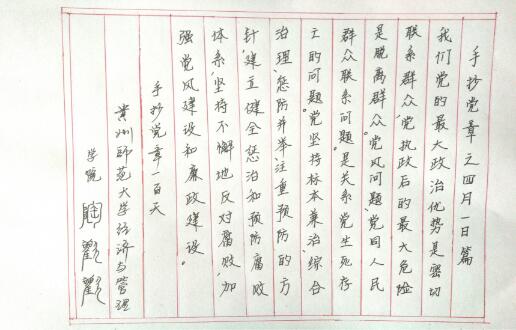 手抄党章之四月一日篇
我们党的最大政治优势是密切
联系群众，党执政后的最大危险
是脱离群众。党风问题、党同人民
群众联系问题是关系党生死存
亡的问题。党坚持标本兼治、综合
治理、惩防并举、注重预防的方
针，建立健全惩治和预防腐败
体系，坚持不懈地反对腐败，加
强党风建设和廉政建设。
手抄党章一百天
贵州师范大学经济与管理
学院